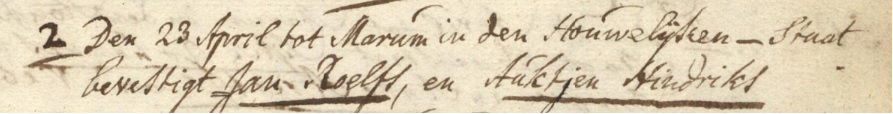 2 Den 23 April tot Marum in den Houwelijken - Staat
bevestigt Jan Roelfs, en Auktjen Hindriks